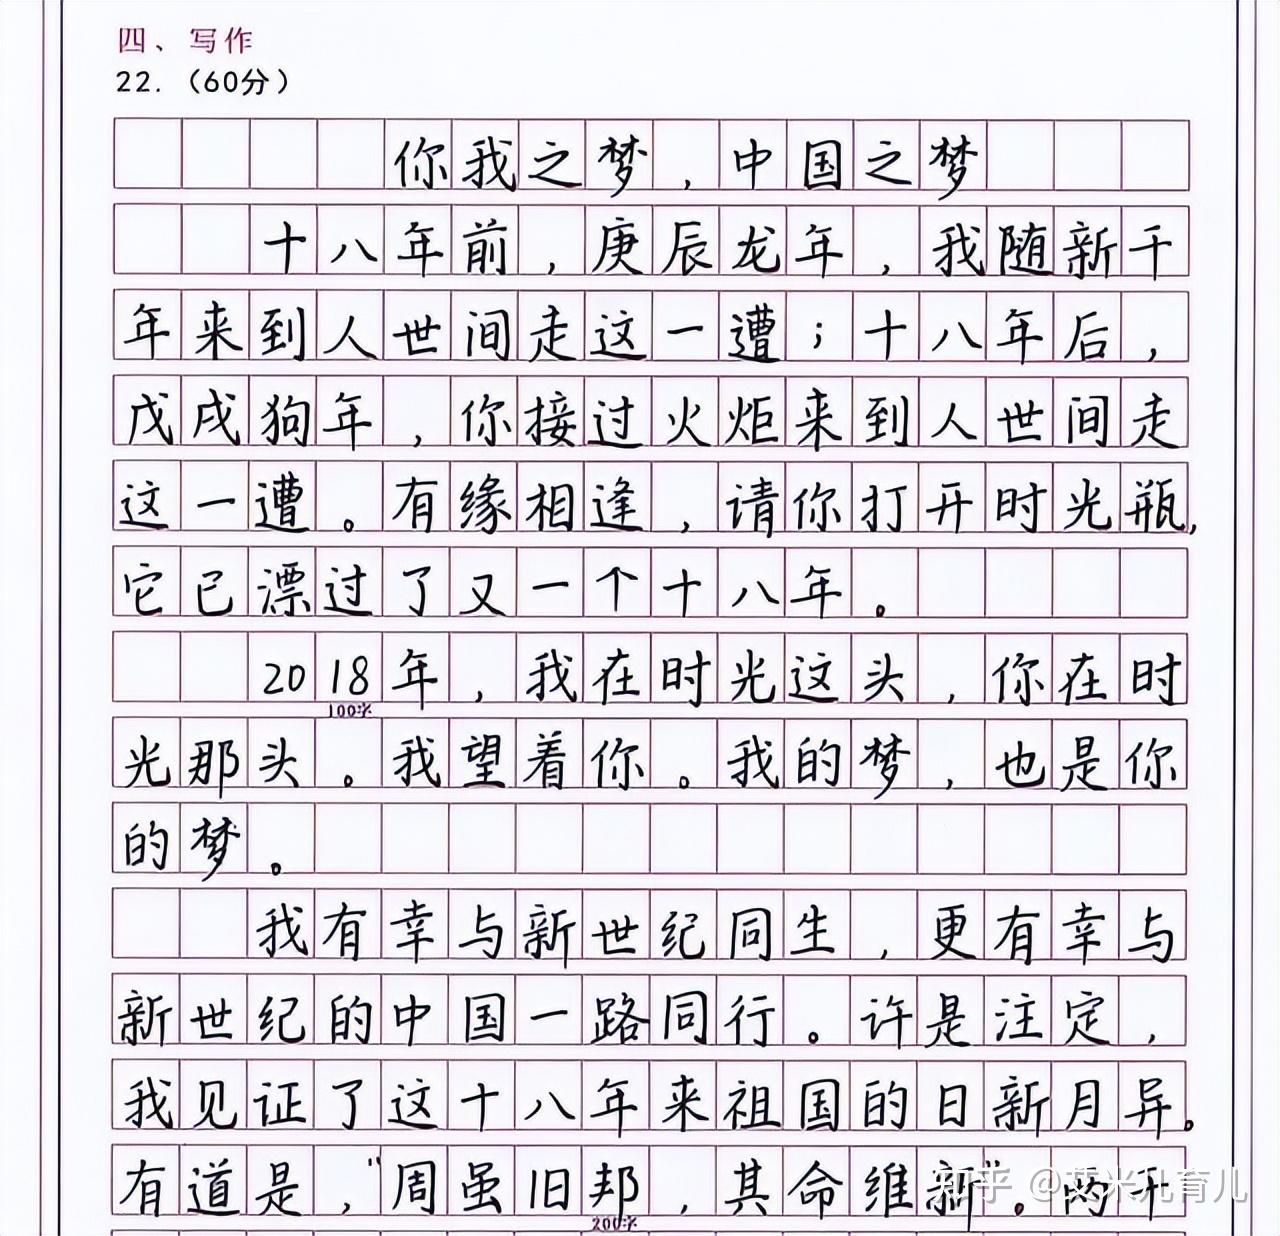 四、写作
22.（60分）
你我之梦，中国之梦
十八年前，庚辰龙年，我随新千
年来到人世间走这一遭；十八年后，
戊戌狗年，你接过火炬来到人世间走
这一遭。有缘相逢，请你打开时光瓶，
它已漂过了又一个十八年。
2018年，我在时光这头，你在时
100字
光那头。我望着你。我的梦，也是你
的梦。
我有幸与新世纪同生，更有幸与
新世纪的中国一路同行。许是注定，
我见证了这十八年来祖国的日新月异。
有道是，“周虽旧邦，其命维新”。两千
200字
知乎 @艾米儿育儿